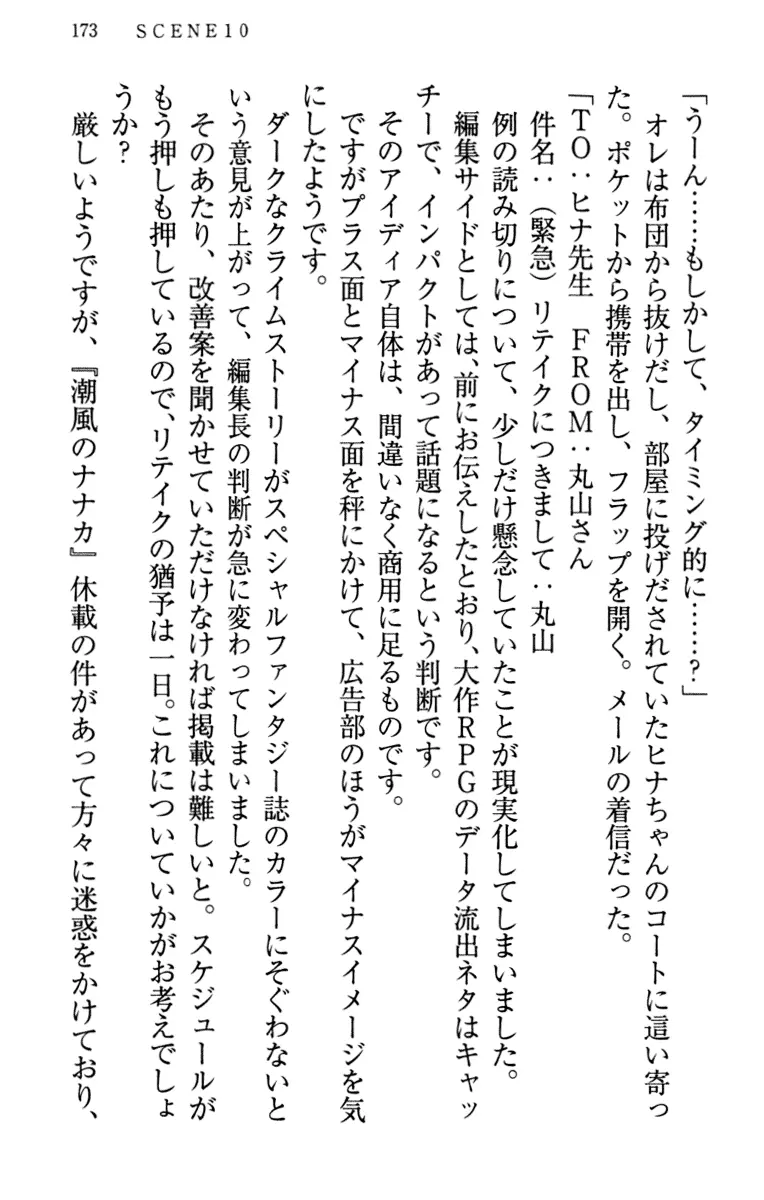 173 SCENE10
「うーん……もしかして、タイミング的に……？」
オレは布団から抜けだし、部屋に投げだされていたヒナちゃんのコートに這い寄っ
た。ポケットから携帯を出し、フラップを開く。メールの着信だった。
「TO：ヒナ先生　FROM：丸山さん
件名：（緊急）リテイクにつきまして：丸山
例の読み切りについて、少しだけ懸念していたことが現実化してしまいました。
編集サイドとしては、前にお伝えしたとおり、大作RPGのデータ流出ネタはキャッ
チーで、インパクトがあって話題になるという判断です。
そのアイディア自体は、間違いなく商用に足るものです。
ですがプラス面とマイナス面を秤にかけて、広告部のほうがマイナスイメージを気
にしたようです。
ダークなクライムストーリーがスペシャルファンタジー誌のカラーにそぐわないと
いう意見が上がって、編集長の判断が急に変わってしまいました。
そのあたり、改善案を聞かせていただけなければ掲載は難しいと。スケジュールが
もう押しも押しているので、リテイクの猶予は一日。これについていかがお考えでしょ
うか？
厳しいようですが、『潮風のナナカ』休載の件があって方々に迷惑をかけており、